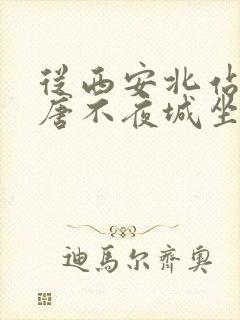 從西安北佔
唐不夜城坐
迪馬尔齊奥